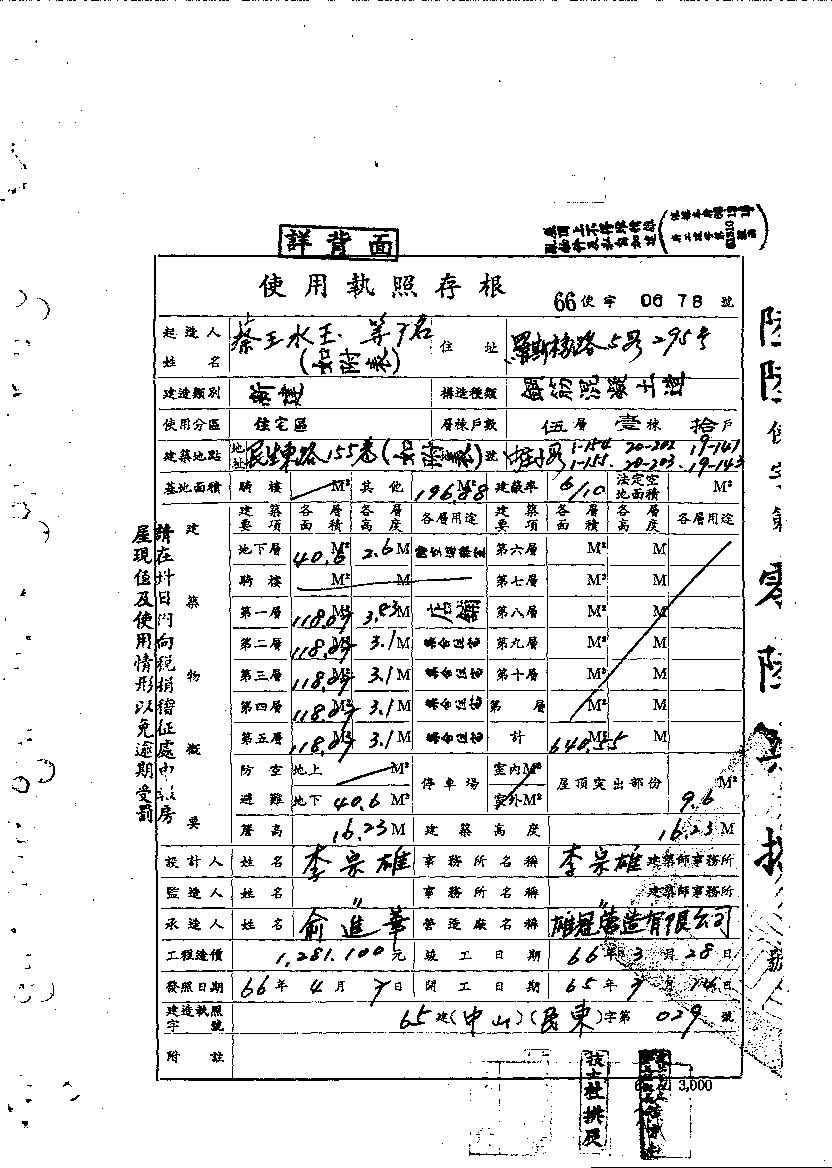 詳背面
使用執照存根
66使字 0678 號
起造人姓名 蔡王水玉 等7名(如附表) 住址 羅斯福路5段295號
建造類別 新建 構造種類 鋼筋混凝土造
使用分區 住宅區 層棟戶數 伍層壹棟拾戶
建築地點 地址 民生東路155巷 號 1-154 20-202 19-141
1-155 20-203 19-143
基地面積 騎樓 M² 其他 196.88 M² 建蔽率 6/10 法定空地面積 M²
建築物概要
建築要項 各層面積 各層高度 各層用途 建築要項 各層面積 各層高度 各層用途
地下層 40.6 M² 2.6 M 第六層 M² M
騎樓 M² M 第七層 M² M
第一層 118.09 M² 3.83 M 店舖 第八層 M² M
第二層 118.09 M² 3.1 M 集合住宅 第九層 M² M
第三層 118.09 M² 3.1 M 集合住宅 第十層 M² M
第四層 118.09 M² 3.1 M 集合住宅 第 層 M² M
第五層 118.09 M² 3.1 M 集合住宅 計 640.55 M² M
防空避難 地上 M² 停車場 室內M² 屋頂突出部份 9.6 M²
地下 40.6 M² 室外M²
簷高 16.23 M 建築高度 16.23 M
設計人 姓名 李宗雄 事務所名稱 李宗雄 建築師事務所
監造人 姓名 〃 事務所名稱 〃 建築師事務所
承造人 姓名 俞進華 營造廠名稱 雄冠營造有限公司
工程造價 1,281,100元 竣工日期 66年3月28日
發照日期 66年4月7日 開工日期 65年 月 日
建造執照字號 65建(中山)(民東)字第 029 號
附註
請在 日內向稅捐稽征處申 房
屋現值及使用情形以免逾期受罰
陸陸使字第零陸
3,000